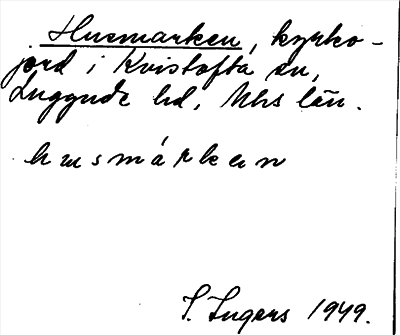 Husmarken, kyrko-
jord i Kvistofta sn,
Luggude hd, Mhs län.
husmárken
I. Ingers 1949.